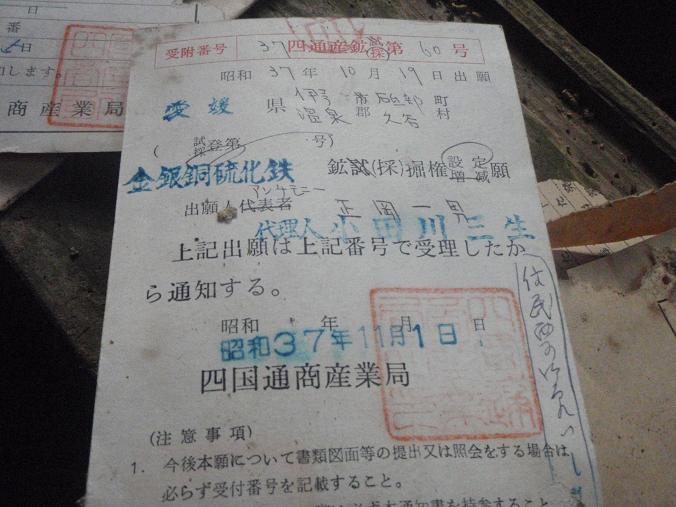 日
番
日
します。
商産業局
受附番号 37 四通産鉱試(採)第 60 号
昭和 37 年 10 月 19 日 出願
愛媛 県 伊予 市 砥部 町
温泉 郡 久谷 村
( 試採登第 号)
金銀銅硫化鉄 鉱試(採)掘権 設定 増減 願
アンチモニー
出願人代表者 正岡一男
代理人 小田川三生
上記出願は上記番号で受理したか
ら通知する。
昭和 年 月 日
昭和37年11月1日
四国通商産業局
(注意事項)
1. 今後本願について書類図面等の提出又は照会をする場合は、
必らず受付番号を記載すること。